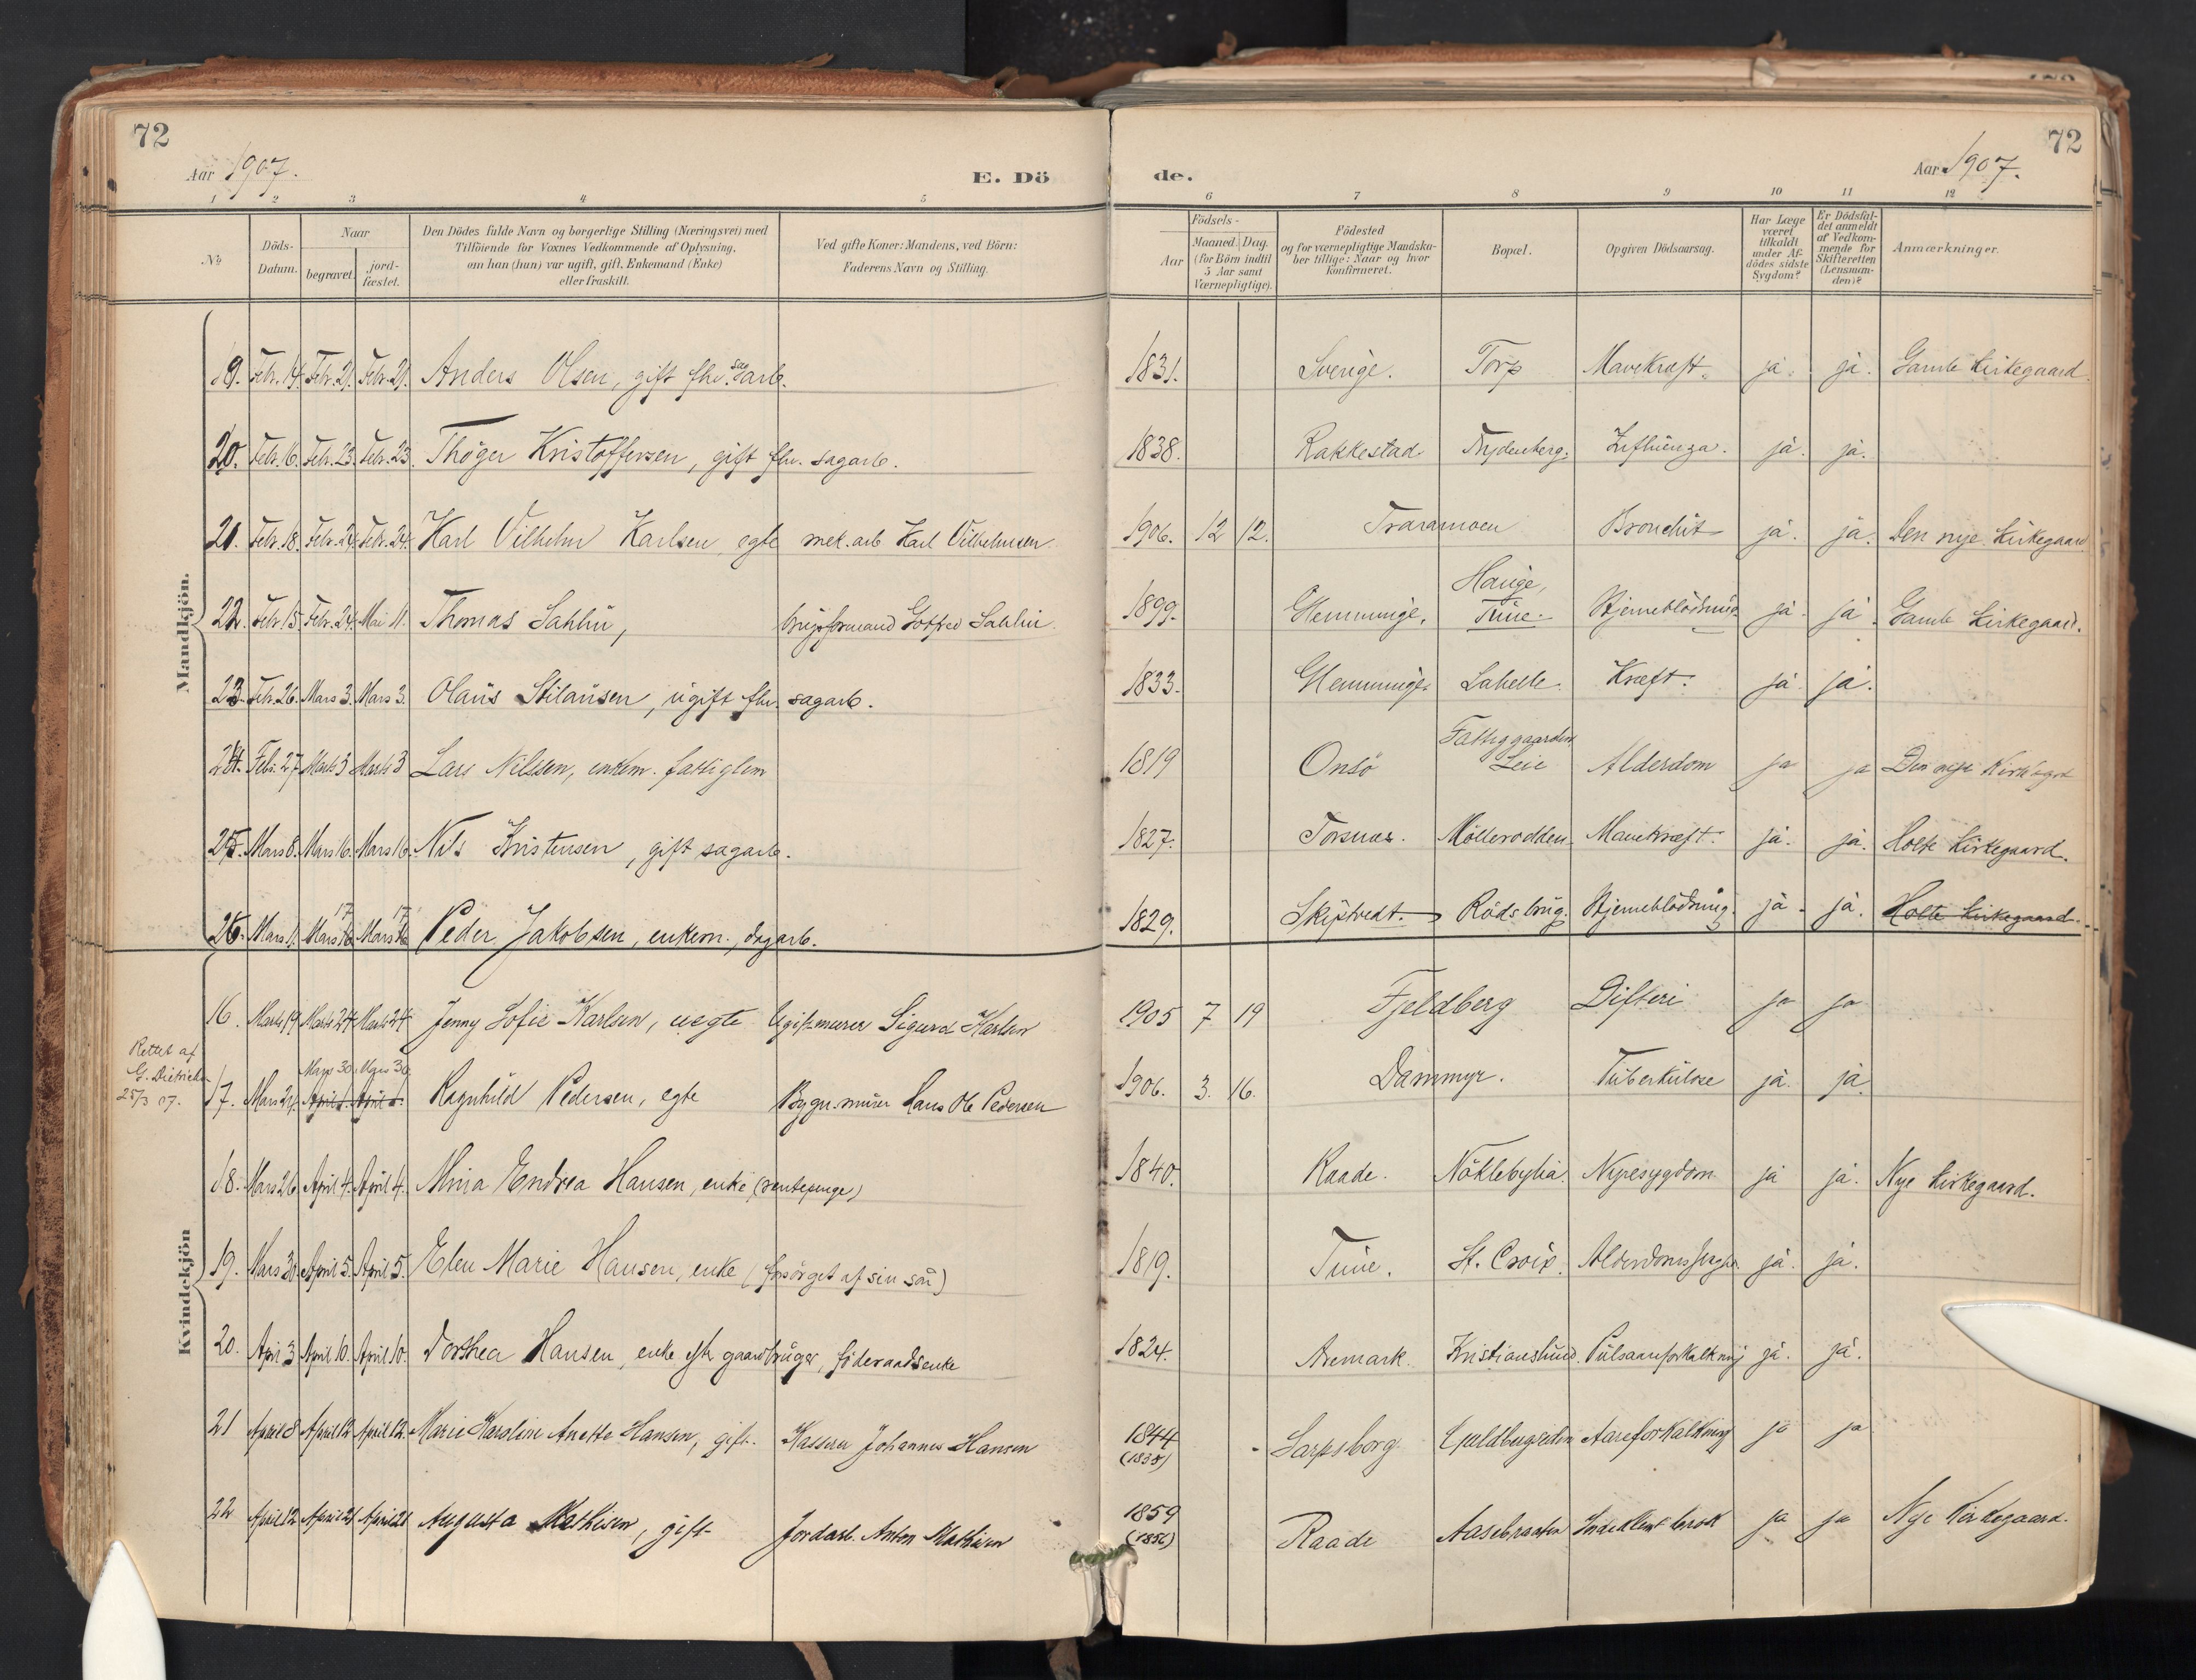 72
72
Aar 1907.
E. Döde.
Aar 1907.
1 2 3 4 5 6 7 8 9 10 11 12
No
Döds-Datum.
Naar
begravet.
jord-fæstet.
Den Dödes fulde Navn og borgerlige Stilling (Næringsvei) med
Tilföiende for Voxnes Vedkommende af Oplysning,
om han (hun) var ugift, gift, Enkemand (Enke)
eller fraskilt.
Ved gifte Koner: Mandens, ved Börn:
Faderens Navn og Stilling.
Födsels-
Aar
Maaned. Dag.
(for Börn indtil
5 Aar samt
Værnepligtige).
Födested
og for værnepligtige Mandska-
ber tillige: Naar og hvor
konfirmeret.
Bopæl.
Opgiven Dödsaarsag.
Har Læge
været
tilkaldt
under Af-
dödes sidste
Sygdom?
Er Dödsfal-
det anmeldt
af Vedkom-
mende for
Skifteretten
(Lensman-
den)?
Anmærkninger.
Mandkjön.
19. Febr. 14. Febr. 21. Febr. 21. Anders Olsen, gift fhv. sagarb. 1831. Sverige. Torp Mavekræft. ja. ja. Gamle Kirkegaard.
20. Febr. 16. Febr. 23. Febr. 23. Thöger Kristoffersen, gift fhv. sagarb. 1838. Rakkestad Frydenberg. Influenza. ja. ja.
21. Febr. 18. Febr. 24. Febr. 24. Karl Vilhelm Karlsen, egte mek. arb Karl Vilhelmsen 1906. 12 12. Traramoen Bronchit ja. ja. Den nye Kirkegaard
22. Febr. 15. Febr. 24. Mai 11. Thomas Sahlin, brugsformand Gotfred Sahlin 1899. Glemminge. Hauge, Tune. Hjerneblödning ja. ja. Gamle Kirkegaard.
23. Febr. 26. Mars 3. Mars 3. Olaus Stilausen, ugift fhv. sagarb. 1833. Glemminge. Lahelle. Kræft. ja. ja.
24. Febr. 27 Marts 3 Marts 3 Lars Nilssen, enkem. fattiglem 1819 Onsö Fattiggaarden Leie Alderdom ja ja Den nye Kirkegrd
25. Mars 8. Mars 16. Mars 16. Nils Kristensen, gift sagarb. 1827. Torsnæs. Mölleroddèn. Mavekræft. ja. ja. Holte Kirkegaard.
26. Mars 11. Mars 16 17 Mars 16 17 Peder Jakobsen, enkem., dagarb. 1829. Skiptvedt. Rödsbrug. Hjerneblödning. ja. ja. Holte Kirkegaard.
Kvindekjön
16. Marts 19 Marts 24 Marts 24 Jenny Sofie Karlsen, uegte Ugift murer Sigurd Karlsen 1905 7 19 Fjeldberg Difteri ja ja
Rettet af
G. Dietrichs
25/3 07.
17. Mars 24. April 1. Mars 30. April 1. Mars 30. Ragnhild Pedersen, egte Bygn. murer Hans Ole Pedersen 1906. 3. 16. Dammyr. Tuberkulose ja. ja.
18. Mars 26 April 4. April 4. Mina Endrea Hansen, enke (rentepenge) 1840. Raade. Nöklebylia. Nyresygdom ja ja. Nye Kirkegaard.
19. Mars 30. April 5. April 5. Elen Marie Hansen, enke (forsörget af sin sön) 1819. Tune. St. Croix. ja. ja.
20. April 3 April 10. April 10. Dorthea Hansen, enke efter gaardbruger, föderaadsenke 1824. Aremark. Kristianslund. Pulsaareforkalkning ja. ja.
21 April 8 April 12 April 12. Marie Karoline Anette Hansen, gift. Kasserer Johannes Hansen 1844 (1838) Sarpsborg. Guldbergsiden Aareforkalkning ja ja
22 April 12 April 21 April 21 Augusta Mathisen, gift Jordarb. Anton Mathisen 1859 (1856) Raade Aasebraaten Indeklemt brok ja ja Nye Kirkegaard.